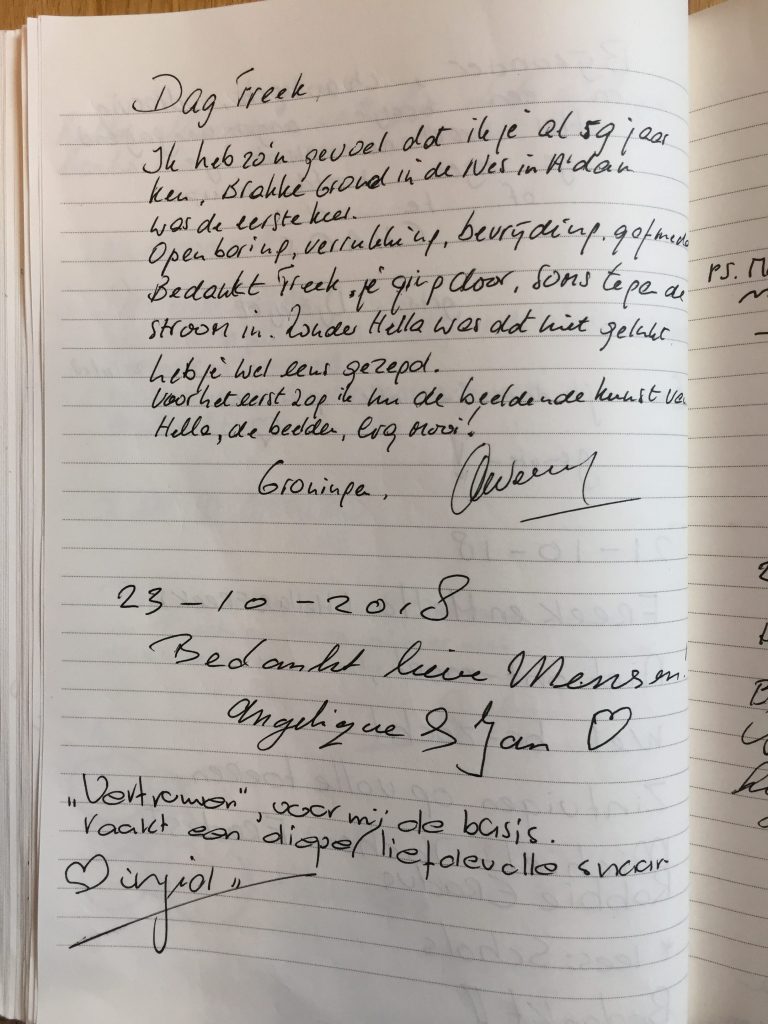 Dag Freek,
Ik heb zo'n gevoel dat ik je al 59 jaar
ken, Brakke Grond in de Nes in A'dam
was de eerste keer.
Openbaring, verrukking, bevrijding.
Bedankt Freek, je ging door, soms tegen de
stroom in. Zonder Hella was dat niet gelukt
heb je wel eens gezegd.
Voor het eerst zag ik nu de beeldende kunst van
Hella, de bedden, erg mooi!
Groningen,
23-10-2018
Bedankt lieve Mensen!
Angelique & Jan
"Vertrouwen", voor mij de basis.
raakt een diepe/liefdevolle snaar
ps.